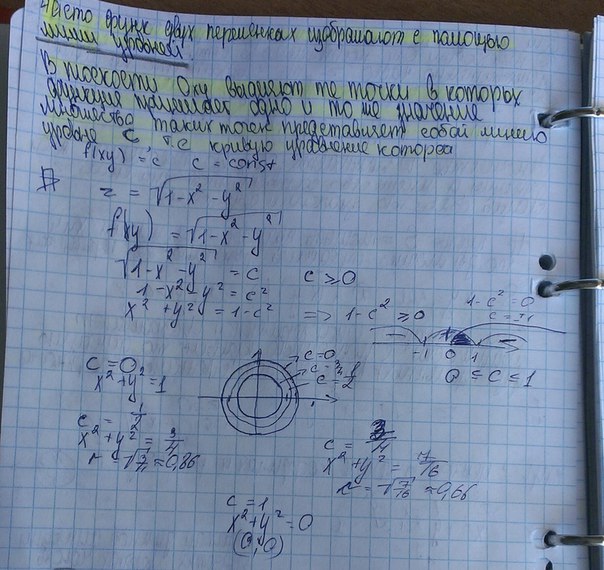 Часто функ двух переменных изображают с помощью
линии уровней.
В плоскости Oxy выделяют те точки в которых
функция принимает одно и то же значение
множество таких точек представляет собой линию
уровня C, т.е кривую уравнение которой
f(xy) = c c = const
z = √1-x² -y²
f(xy) = √1-x² -y²
√1-x² -y² = c c ≥ 0
1-x² -y² = c²
x² +y² = 1-c² => 1-c² ≥ 0
1-c² = 0
c = ±1
- + -
-1 0 1
0 ≤ c ≤ 1
c = 0
x² +y² = 1
c=0
c= 3/4
c= 1/2
c = 1/2
x² +y² = 3/4
r = √3/4 ≈0,86
c = 3/4
x² +y² = 7/16
r = √7/16 ≈0,66
c = 1
x² +y² = 0
(0,0)